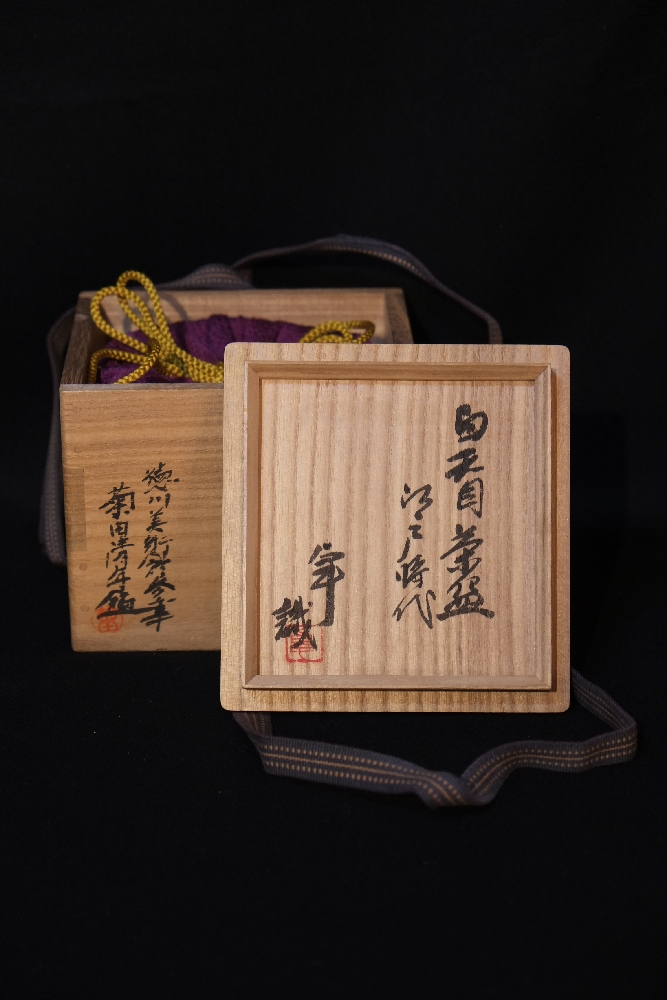 白天目 茶盌
江戸時代
識
徳川美術館参事
菊田清年鑑